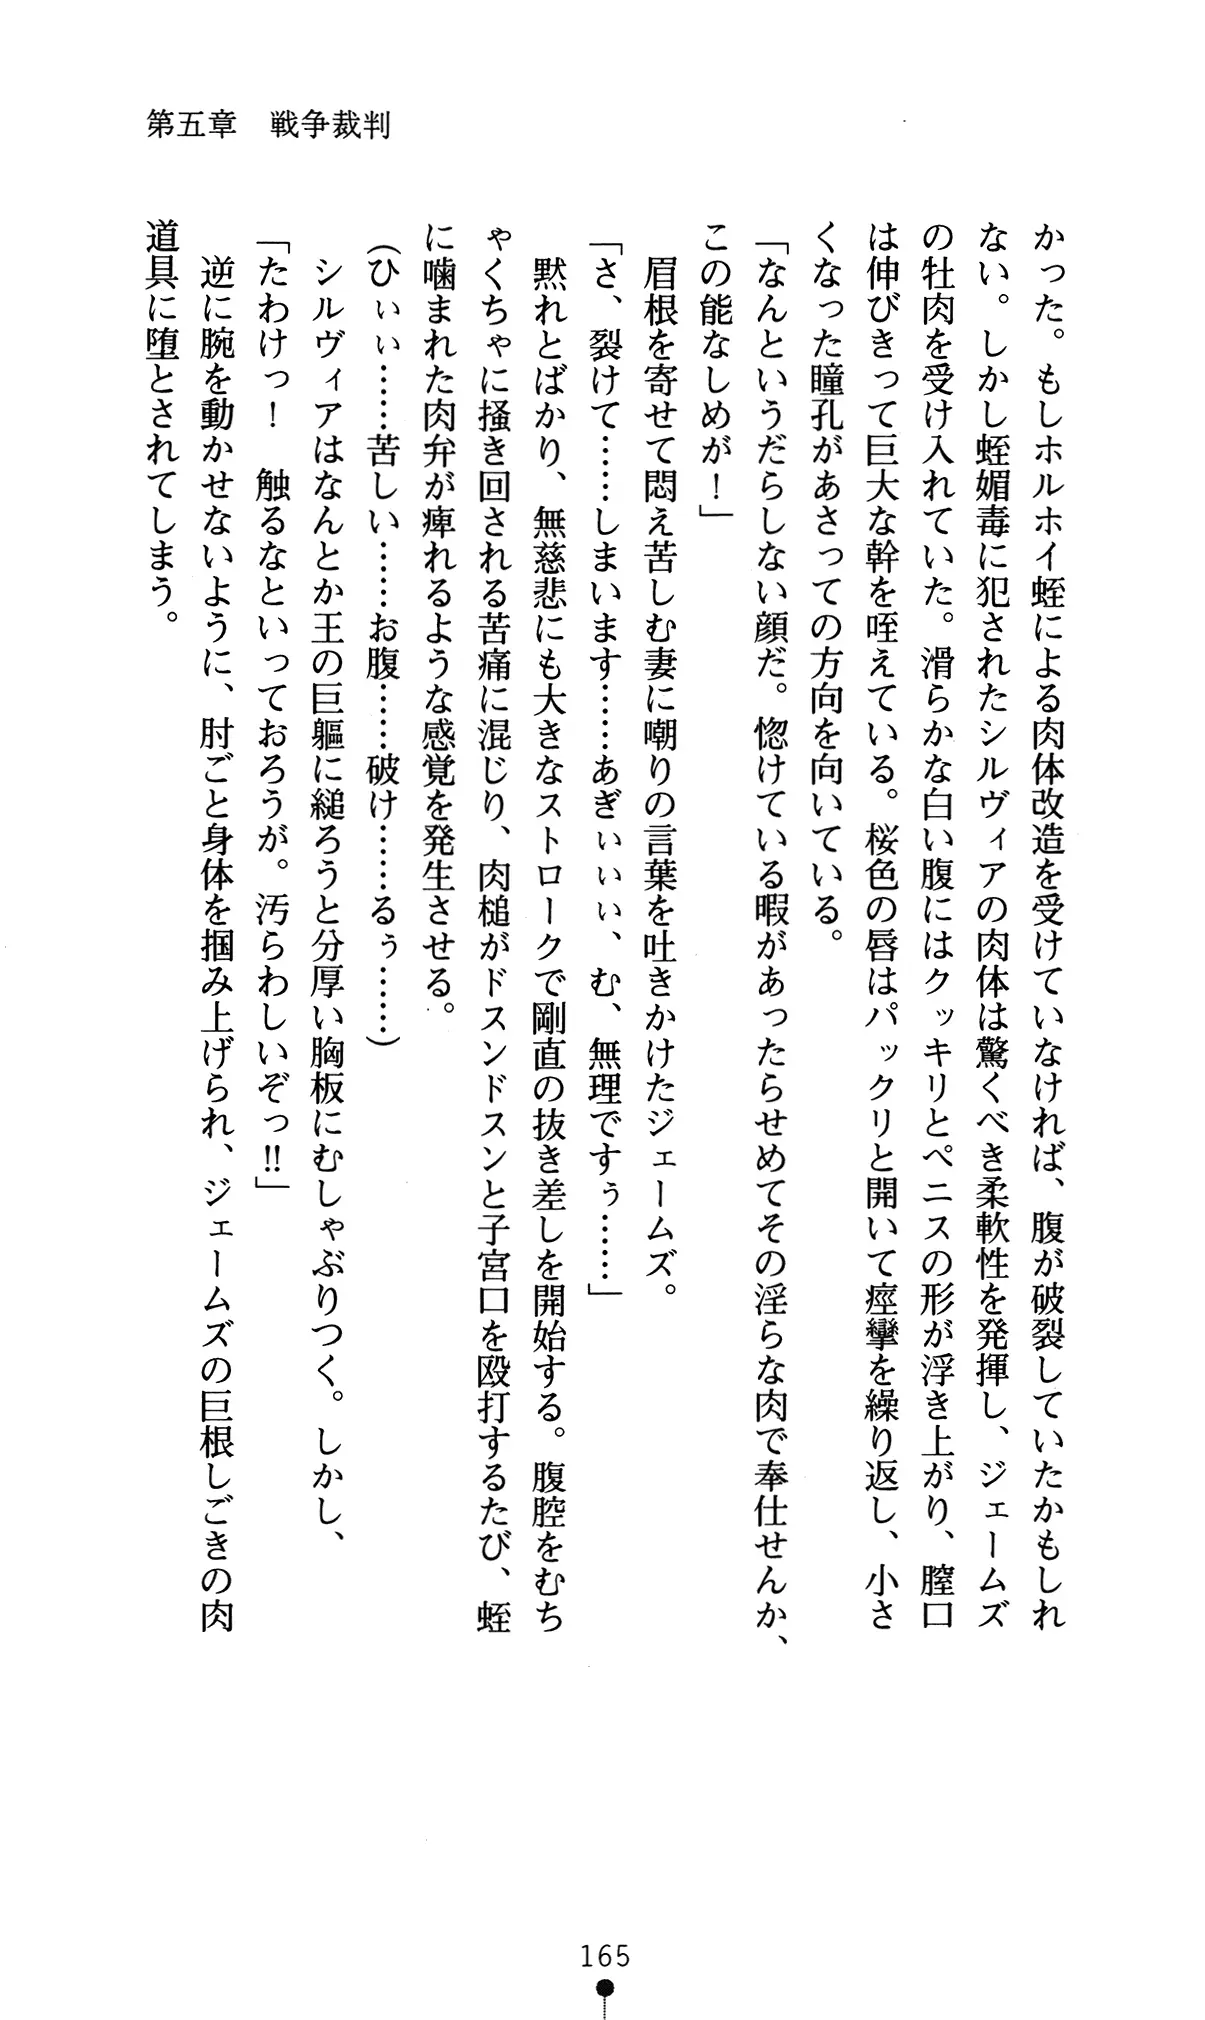 第五章　戦争裁判
かった。もしホルホイ蛭による肉体改造を受けていなければ、腹が破裂していたかもしれ
ない。しかし蛭媚毒に犯されたシルヴィアの肉体は驚くべき柔軟性を発揮し、ジェームズ
の牡肉を受け入れていた。滑らかな白い腹にはクッキリとペニスの形が浮き上がり、膣口
は伸びきって巨大な幹を咥えている。桜色の唇はパックリと開いて痙攣を繰り返し、小さ
くなった瞳孔があさっての方向を向いている。
「なんというだらしない顔だ。惚けている暇があったらせめてその淫らな肉で奉仕せんか、
この能なしめが！」
眉根を寄せて悶え苦しむ妻に嘲りの言葉を吐きかけたジェームズ。
「さ、裂けて……しまいます……あぎぃぃぃ、む、無理ですぅ……」
黙れとばかり、無慈悲にも大きなストロークで剛直の抜き差しを開始する。腹腔をむち
ゃくちゃに掻き回される苦痛に混じり、肉槌がドスンドスンと子宮口を殴打するたび、蛭
に噛まれた肉弁が痺れるような感覚を発生させる。
（ひぃぃ……苦しい……お腹……破け……るぅ……）
シルヴィアはなんとか王の巨軀に縋ろうと分厚い胸板にむしゃぶりつく。しかし、
「たわけっ！　触るなといっておろうが。汚らわしいぞっ!!」
逆に腕を動かせないように、肘ごと身体を掴み上げられ、ジェームズの巨根しごきの肉
道具に堕とされてしまう。
165